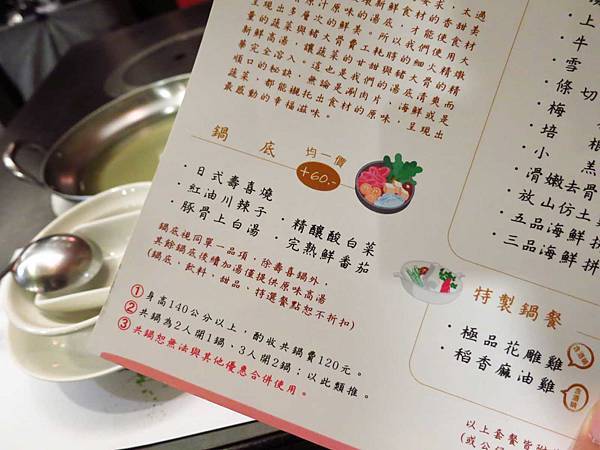 新鮮高湯，讓蔬菜的甘甜與豬大骨的精
華完全溶入。這也是我們的湯底清爽而
順口的秘訣，無論是涮肉片、海鮮或是
蔬菜，都能襯托出食材的原味，呈現出
最感動的幸福滋味。
鍋底 均一價 +60.-
·日式壽喜燒
·紅油川辣子 ·精釀酸白菜
·豚骨上白湯 ·完熟鮮番茄
鍋底視同單一品項，除壽喜鍋外，
其餘鍋底後續加湯僅提供原味高湯
(鍋底、飲料、甜品、特選餐點恕不折扣)
①身高140公分以上，酌收共鍋費120元。
②共鍋為2人開1鍋、3人開2鍋；以此類推。
③共鍋恕無法與其他優惠合併使用。
·上
·牛
·雪
·條切
·梅
·培根
·小羔
·滑嫩去骨
·放山仿土
·五品海鮮拼
·三品海鮮拼
特製鍋餐
·極品花雕雞
·稻香麻油雞
以上套餐皆附